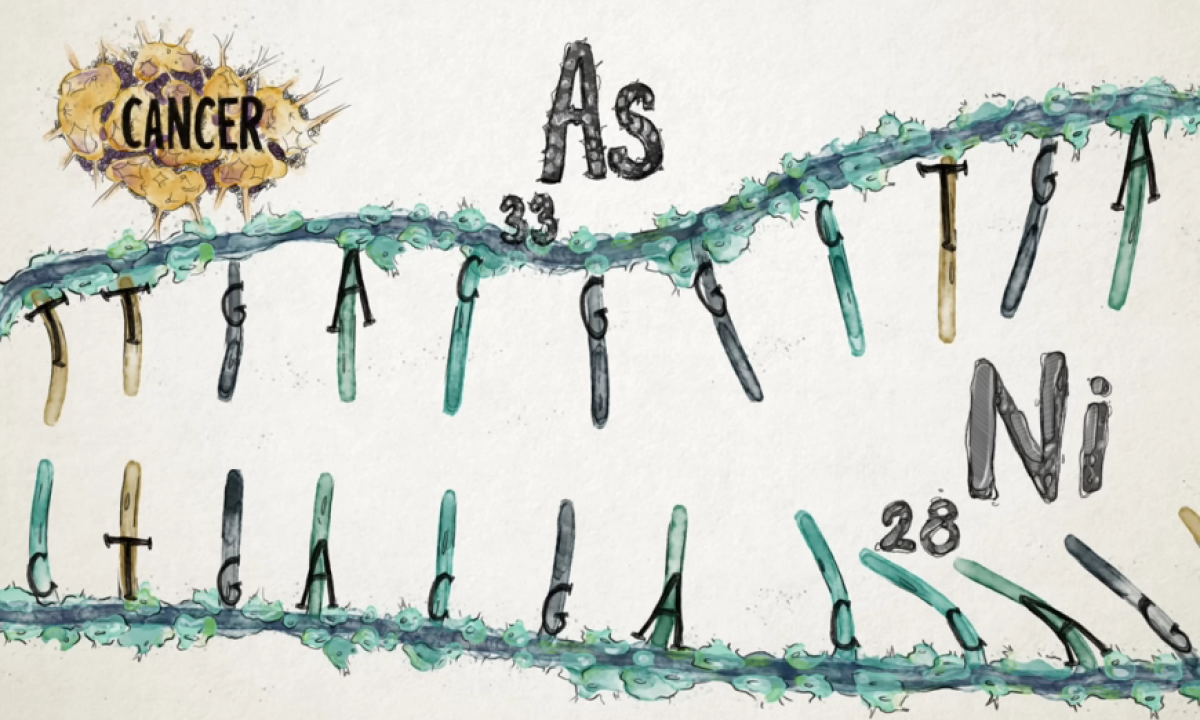 CANCER
As
33
T T G A C G G C T G A
Ni
28
C T G A C G A C C A G